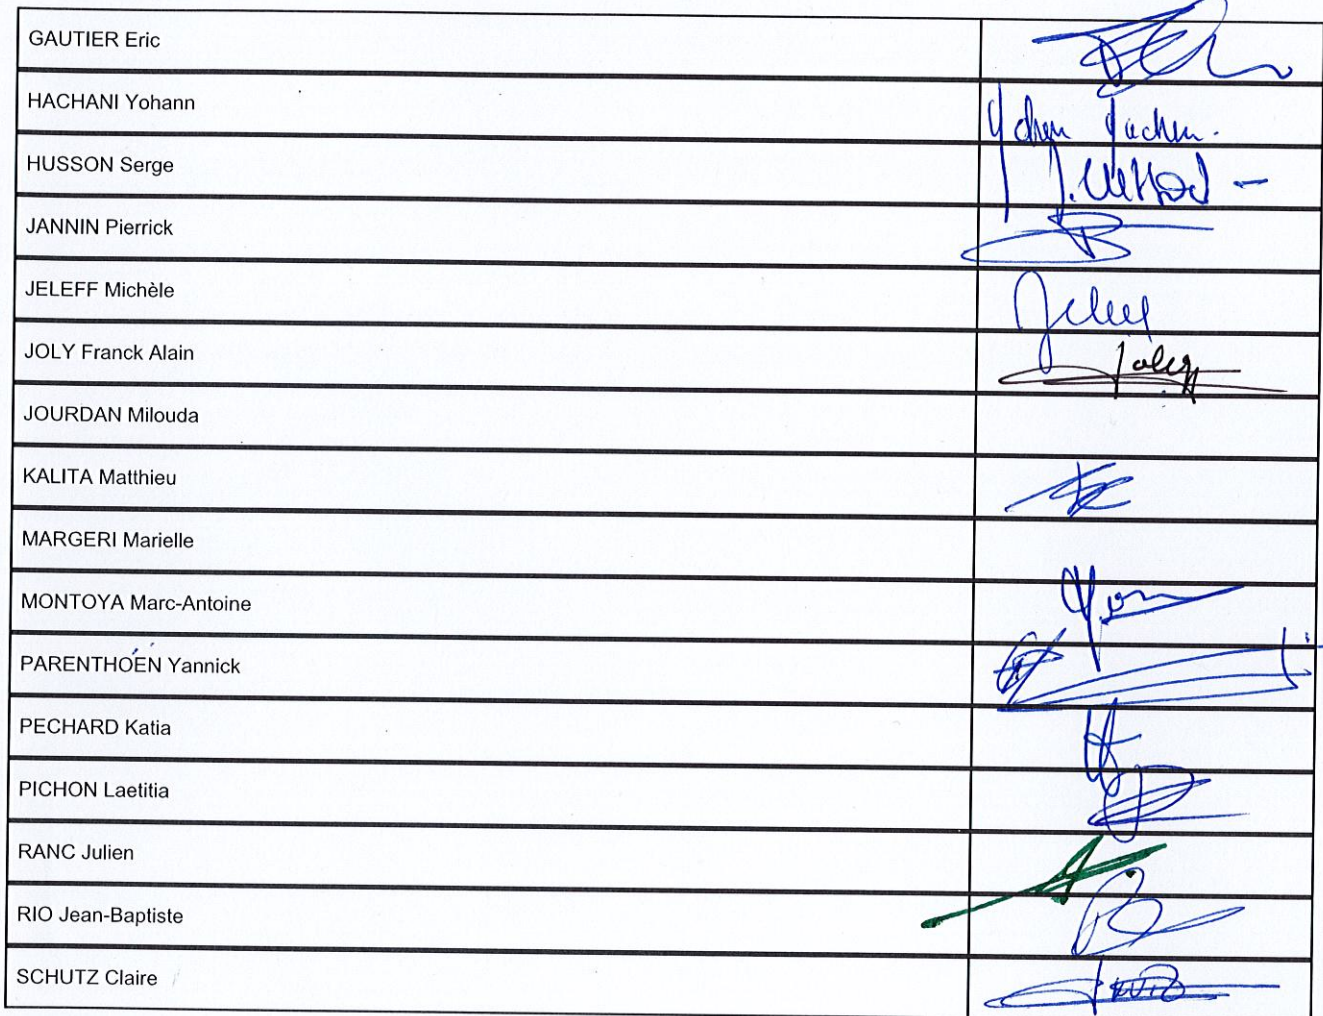 GAUTIER Eric
HACHANI Yohann
HUSSON Serge
JANNIN Pierrick
JELEFF Michèle
JOLY Franck Alain
Joly
JOURDAN Milouda
KALITA Matthieu
MARGERI Marielle
MONTOYA Marc-Antoine
PARENTHÓËN Yannick
PECHARD Katia
PICHON Laetitia
RANC Julien
RIO Jean-Baptiste
SCHUTZ Claire